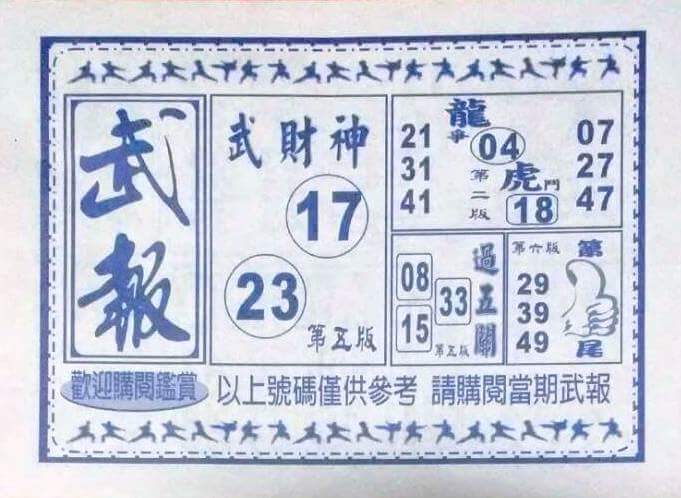 武報
武財神
17
23
第五版
龍爭
04
虎鬥
18
第二版
21
31
41
07
27
47
過五關
08
15
33
第五版
第六版
第
尾
29
39
49
歡迎購閱鑑賞
以上號碼僅供參考 請購閱當期武報